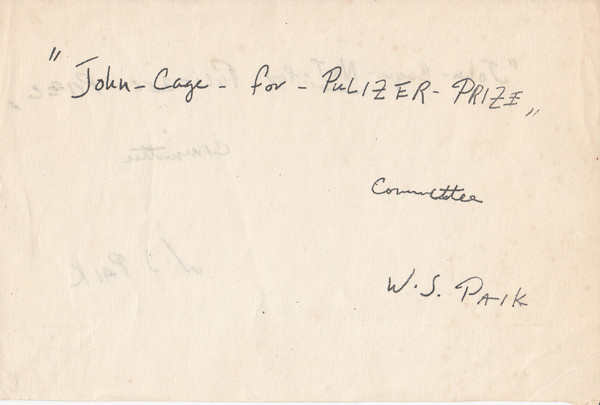 "John-Cage-for-PULIZER-PRIZE„
Committee
W.S. PAIK